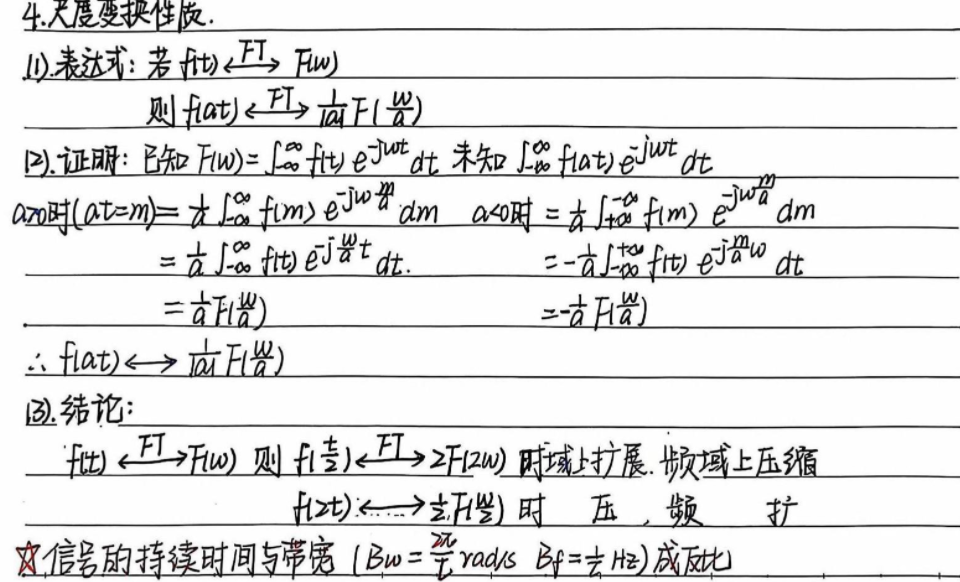 4.尺度变换性质.
(1).表达式: 若 f(t) ←FT→ F(w)
则 f(at) ←FT→ 1/|a| F(w/a)
(2).证明: 已知 F(w)=∫_{-∞}^{∞} f(t) e^{-jwt} dt 未知 ∫_{-∞}^{∞} f(at) e^{-jwt} dt
a>0时(at=m)= 1/a ∫_{-∞}^{∞} f(m) e^{-jw m/a} dm a<0时 = 1/a ∫_{+∞}^{-∞} f(m) e^{-jw m/a} dm
= 1/a ∫_{-∞}^{∞} f(t) e^{-j w/a t} dt. =-1/a ∫_{-∞}^{+∞} f(t) e^{-j m/a w} dt
= 1/a F(w/a) =-1/a F(w/a)
∴ f(at) ←→ 1/|a| F(w/a)
(3).结论:
f(t) ←FT→ F(w) 则 f(t/2) ←FT→ 2F(2w) 时域上扩展.频域上压缩
f(2t) ←→ 1/2 F(w/2) 时 压 , 频 扩
☆信号的持续时间与带宽 (Bw = 2π/τ rad/s Bf = 1/τ Hz) 成反比